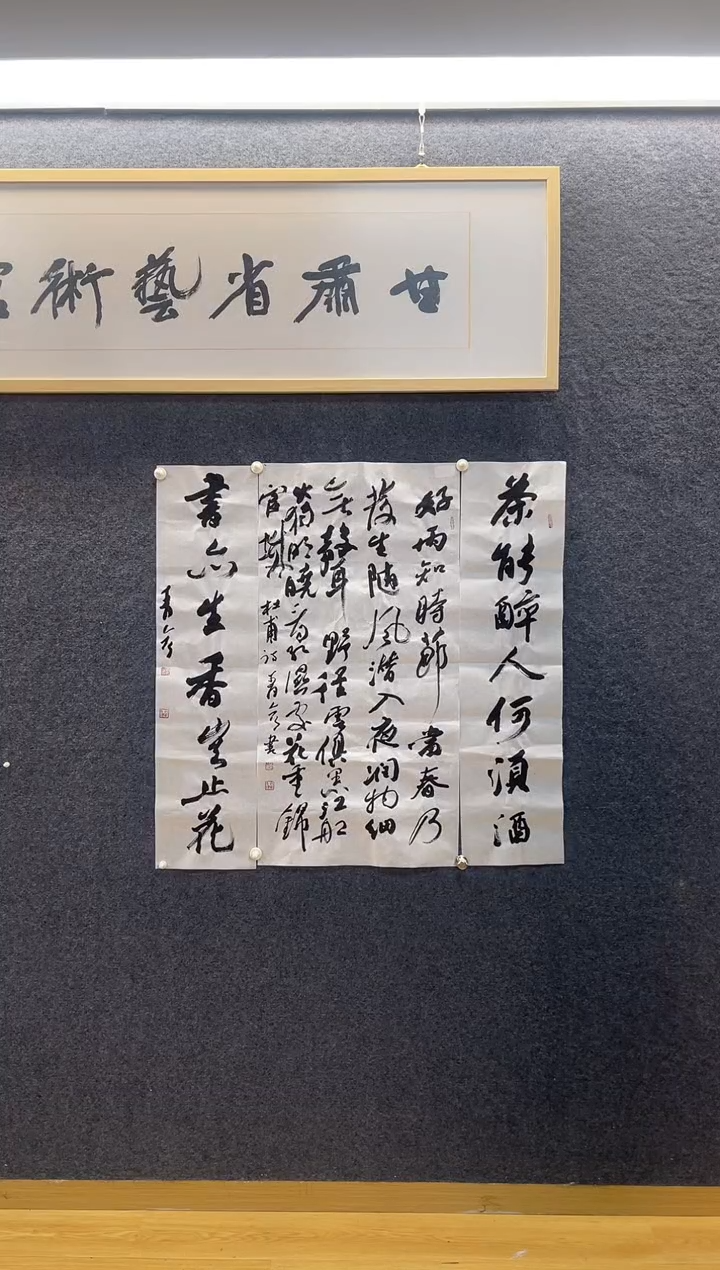 甘肅省藝術
茶能醉人何須酒
好雨知時節當春乃
發生随風潜入夜润物细
無聲野徑雲俱黑江船
火獨明曉看红濕處花重錦
官城 杜甫诗 書
書亦生香豈止花